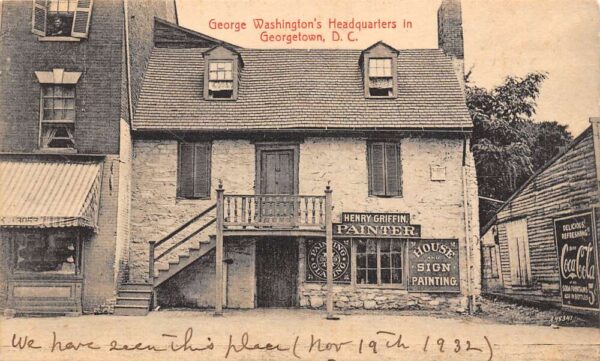 George Washington's Headquarters in
Georgetown, D. C.
HENRY GRIFFIN,
PAINTER
HOUSE
AND
SIGN
PAINTING.
DELICIOUS
REFRESHING
Coca-Cola
5¢
We have seen this place (Nov 19th 1932)